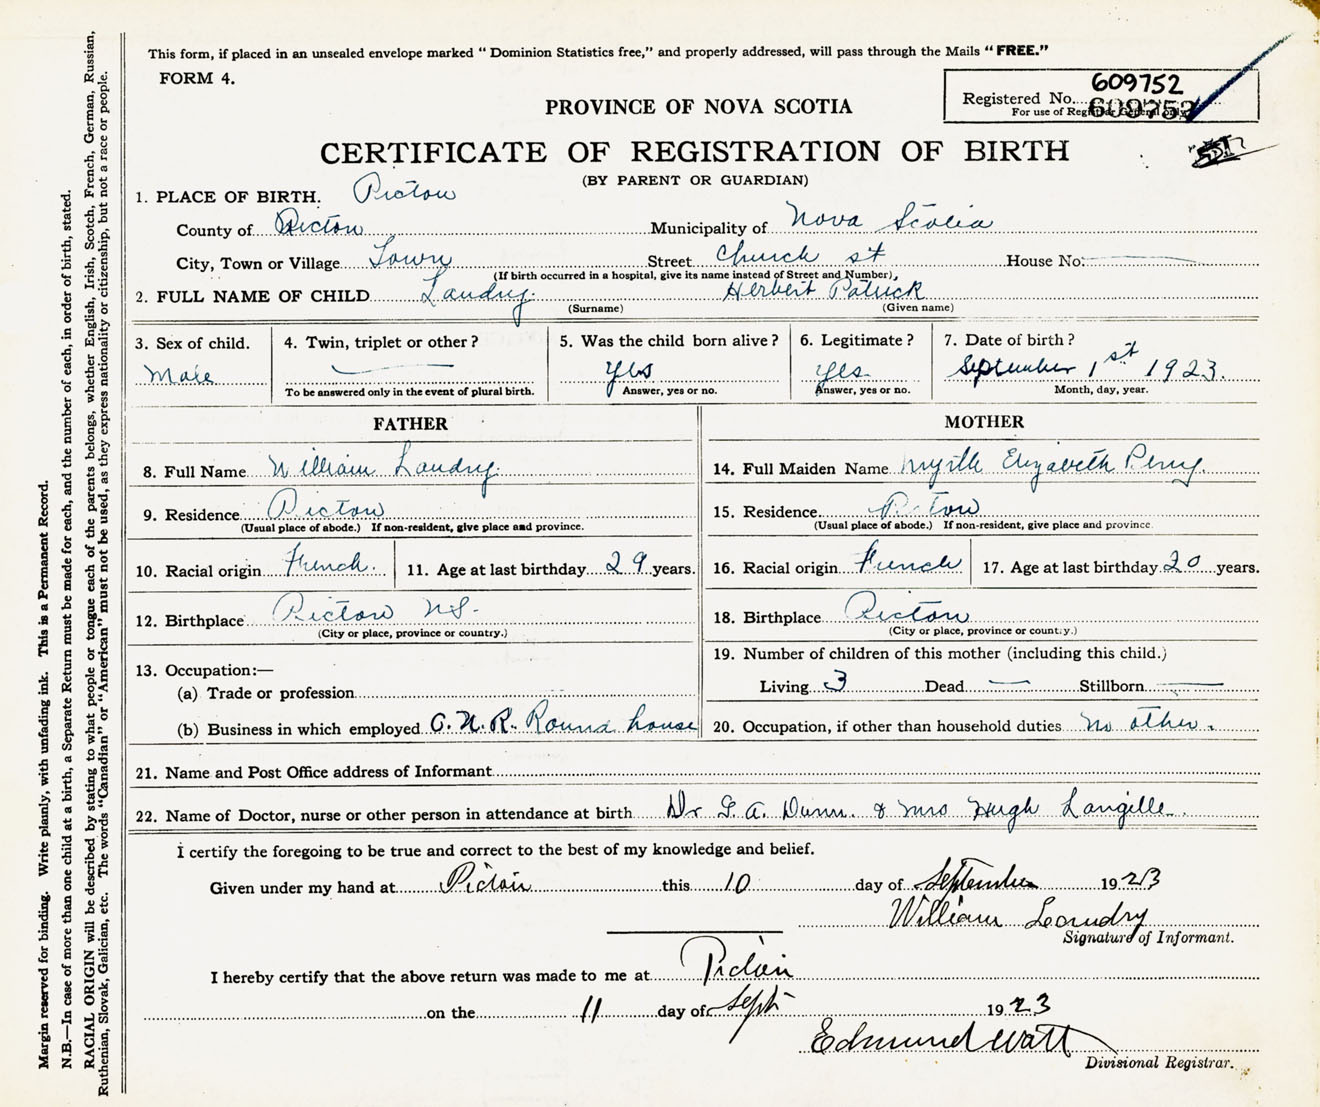 This form, if placed in an unsealed envelope marked " Dominion Statistics free," and properly addressed, will pass through the Mails "FREE."
FORM 4.
609752
Registered No. 609752
For use of Registrar General only
PROVINCE OF NOVA SCOTIA
CERTIFICATE OF REGISTRATION OF BIRTH
(BY PARENT OR GUARDIAN)
1. PLACE OF BIRTH. Pictou
County of Pictou Municipality of Nova Scotia
City, Town or Village Town Street Church st House No:
(If birth occurred in a hospital, give its name instead of Street and Number)
2. FULL NAME OF CHILD Landry Herbert Patrick
(Surname) (Given name)
3. Sex of child. 4. Twin, triplet or other? 5. Was the child born alive? 6. Legitimate? 7. Date of birth?
Male yes yes September 1st 1923.
To be answered only in the event of plural birth. Answer, yes or no. Answer, yes or no. Month, day, year.
FATHER
8. Full Name William Landry.
9. Residence Pictou
(Usual place of abode.) If non-resident, give place and province.
10. Racial origin French. 11. Age at last birthday 29 years.
12. Birthplace Pictou NS.
(City or place, province or country.)
13. Occupation:—
(a) Trade or profession
(b) Business in which employed C.N.R. Round house
MOTHER
14. Full Maiden Name Myrtle Elizabeth Perry.
15. Residence Pictou
(Usual place of abode.) If non-resident, give place and province.
16. Racial origin French 17. Age at last birthday 20 years.
18. Birthplace Pictou
(City or place, province or country.)
19. Number of children of this mother (including this child.)
Living 3 Dead — Stillborn —
20. Occupation, if other than household duties no other.
21. Name and Post Office address of Informant
22. Name of Doctor, nurse or other person in attendance at birth Dr G. A. Dunn. & Mrs Hugh Langille.
I certify the foregoing to be true and correct to the best of my knowledge and belief.
Given under my hand at Pictou this 10 day of September 1923
William Landry
Signature of Informant.
I hereby certify that the above return was made to me at Pictou
on the 11 day of Sept 1923
Edmund Watt
Divisional Registrar.
Margin reserved for binding. Write plainly, with unfading ink. This is a Permanent Record.
N.B.—In case of more than one child at a birth, a Separate Return must be made for each, and the number of each, in order of birth, stated.
RACIAL ORIGIN will be described by stating to what people or tongue each of the parents belongs, whether English, Irish, Scotch, French, German, Russian,
Ruthenian, Slovak, Galician, etc. The words "Canadian" or "American" must not be used, as they express nationality or citizenship, but not a race or people.